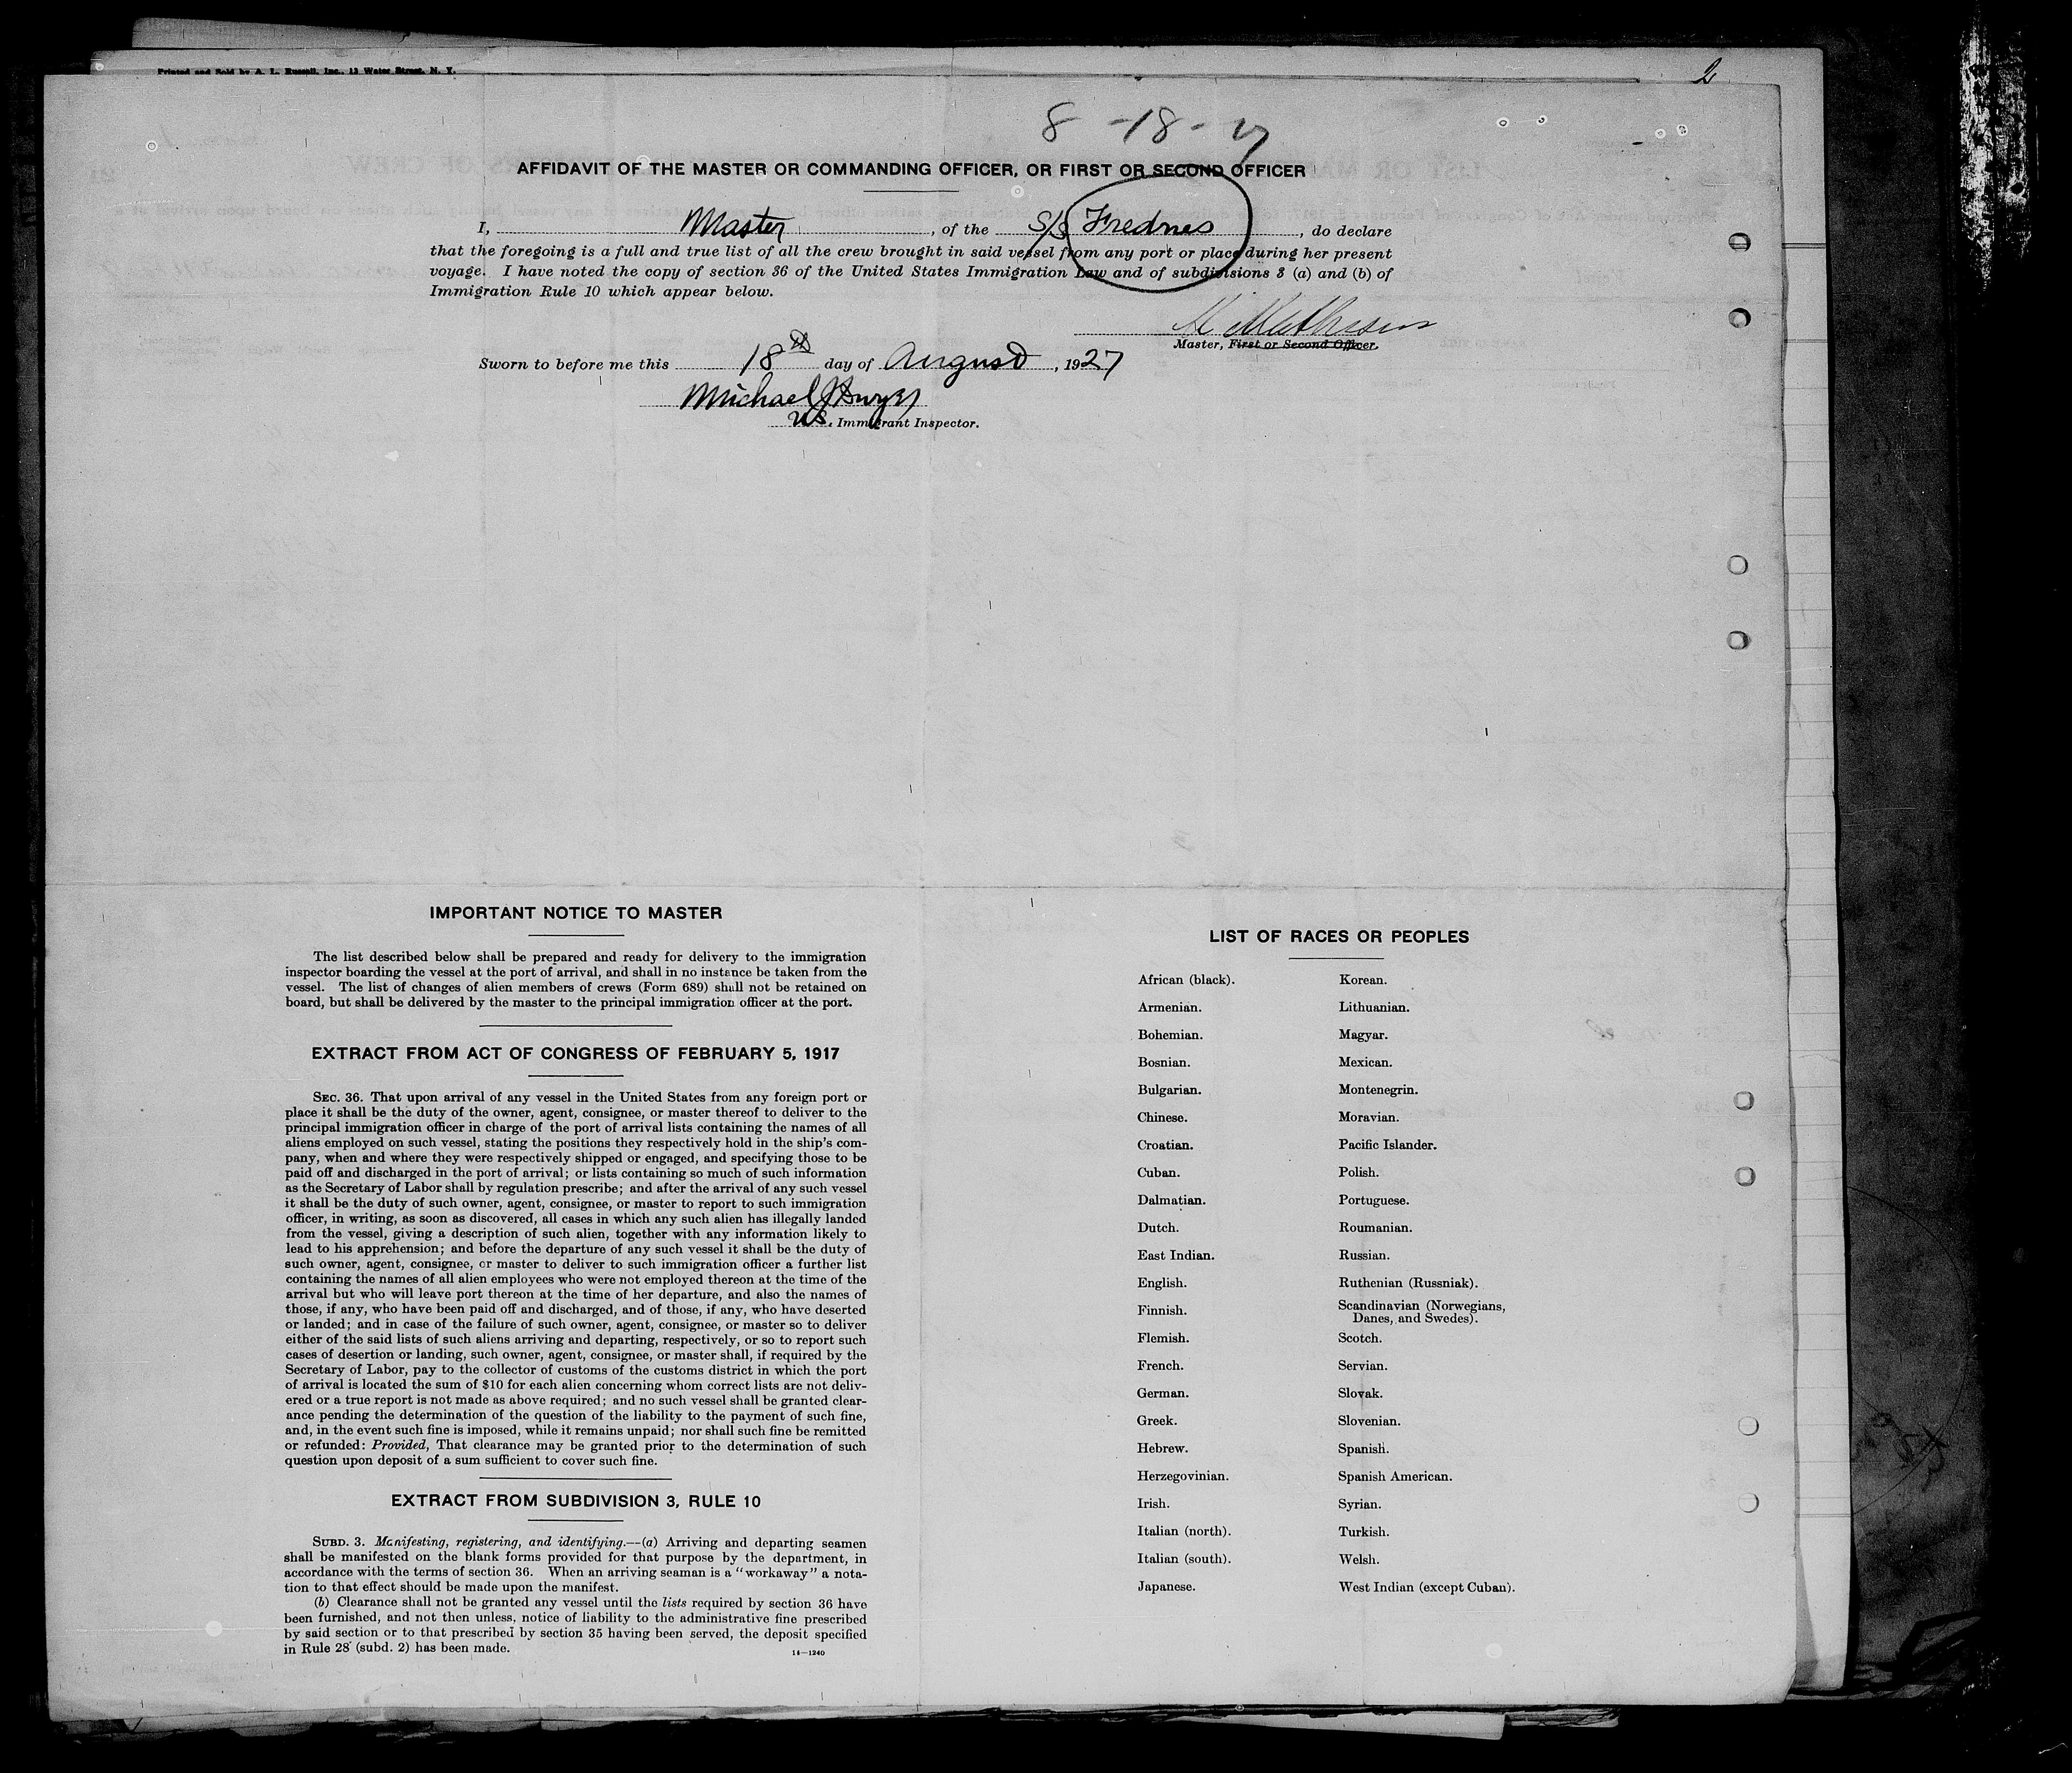 Printed and Sold by A. L. Russell, Inc., 13 Water Street, N. Y.
2
8-18-27
AFFIDAVIT OF THE MASTER OR COMMANDING OFFICER, OR FIRST OR SECOND OFFICER
I, Master, of the S/S Frednes, do declare
that the foregoing is a full and true list of all the crew brought in said vessel from any port or place during her present
voyage. I have noted the copy of section 36 of the United States Immigration Law and of subdivisions 3 (a) and (b) of
Immigration Rule 10 which appear below.
Master, First or Second Officer.
Sworn to before me this 18th day of August, 1927
Michael J Dwyer
U.S. Immigrant Inspector.
IMPORTANT NOTICE TO MASTER
The list described below shall be prepared and ready for delivery to the immigration
inspector boarding the vessel at the port of arrival, and shall in no instance be taken from the
vessel. The list of changes of alien members of crews (Form 689) shall not be retained on
board, but shall be delivered by the master to the principal immigration officer at the port.
EXTRACT FROM ACT OF CONGRESS OF FEBRUARY 5, 1917
SEC. 36. That upon arrival of any vessel in the United States from any foreign port or
place it shall be the duty of the owner, agent, consignee, or master thereof to deliver to the
principal immigration officer in charge of the port of arrival lists containing the names of all
aliens employed on such vessel, stating the positions they respectively hold in the ship's com-
pany, when and where they were respectively shipped or engaged, and specifying those to be
paid off and discharged in the port of arrival; or lists containing so much of such information
as the Secretary of Labor shall by regulation prescribe; and after the arrival of any such vessel
it shall be the duty of such owner, agent, consignee, or master to report to such immigration
officer, in writing, as soon as discovered, all cases in which any such alien has illegally landed
from the vessel, giving a description of such alien, together with any information likely to
lead to his apprehension; and before the departure of any such vessel it shall be the duty of
such owner, agent, consignee, or master to deliver to such immigration officer a further list
containing the names of all alien employees who were not employed thereon at the time of the
arrival but who will leave port thereon at the time of her departure, and also the names of
those, if any, who have been paid off and discharged, and of those, if any, who have deserted
or landed; and in case of the failure of such owner, agent, consignee, or master so to deliver
either of the said lists of such aliens arriving and departing, respectively, or so to report such
cases of desertion or landing, such owner, agent, consignee, or master shall, if required by the
Secretary of Labor, pay to the collector of customs of the customs district in which the port
of arrival is located the sum of $10 for each alien concerning whom correct lists are not deliv-
ered or a true report is not made as above required; and no such vessel shall be granted clear-
ance pending the determination of the question of the liability to the payment of such fine,
and, in the event such fine is imposed, while it remains unpaid; nor shall such fine be remitted
or refunded: Provided, That clearance may be granted prior to the determination of such
question upon deposit of a sum sufficient to cover such fine.
EXTRACT FROM SUBDIVISION 3, RULE 10
SUBD. 3. Manifesting, registering, and identifying.—(a) Arriving and departing seamen
shall be manifested on the blank forms provided for that purpose by the department, in
accordance with the terms of section 36. When an arriving seaman is a "workaway" a nota-
tion to that effect should be made upon the manifest.
(b) Clearance shall not be granted any vessel until the lists required by section 36 have
been furnished, and not then unless, notice of liability to the administrative fine prescribed
by said section or to that prescribed by section 35 having been served, the deposit specified
in Rule 28 (subd. 2) has been made.
14—1240
LIST OF RACES OR PEOPLES
African (black).
Armenian.
Bohemian.
Bosnian.
Bulgarian.
Chinese.
Croatian.
Cuban.
Dalmatian.
Dutch.
East Indian.
English.
Finnish.
Flemish.
French.
German.
Greek.
Hebrew.
Herzegovinian.
Irish.
Italian (north).
Italian (south).
Japanese.
Korean.
Lithuanian.
Magyar.
Mexican.
Montenegrin.
Moravian.
Pacific Islander.
Polish.
Portuguese.
Roumanian.
Russian.
Ruthenian (Russniak).
Scandinavian (Norwegians,
Danes, and Swedes).
Scotch.
Servian.
Slovak.
Slovenian.
Spanish.
Spanish American.
Syrian.
Turkish.
Welsh.
West Indian (except Cuban).